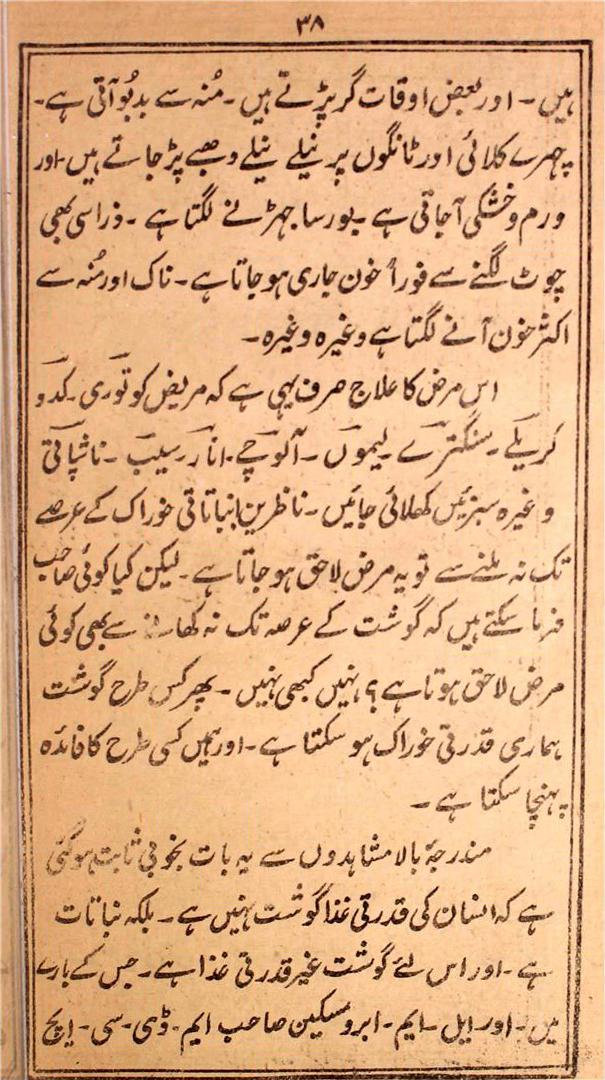 ۳۸
ہیں ۔ اور بعض اوقات گر پڑتے ہیں ۔ مُنہ سے بدبُو آتی ہے ۔
چہرے کلائی اور ٹانگوں پر نیلے نیلے دھبے پڑ جاتے ہیں ۔ اور
ورم و خشکی آجاتی ہے ۔ بورسا جھڑنے لگتا ہے ۔ ذرا سی بھی
چوٹ لگنے سے فوراً خون جاری ہو جاتا ہے ۔ ناک اور مُنہ سے
اکثر خون آنے لگتا ہے وغیرہ وغیرہ ۔
اس مرض کا علاج صرف یہی ہے کہ مریض کو توری ۔ کدو
کریلے ۔ سنگترے ۔ لیموں ۔ آلوچے ۔ انار ۔ سیب ۔ ناشپاتی
وغیرہ سبزئیں کھلائی جائیں ۔ ناظرین! نباتاتی خوراک کے عرصے
تک نہ ملنے سے تو یہ مرض لاحق ہو جاتا ہے ۔ لیکن کیا کوئی صاحب
فرما سکتے ہیں کہ گوشت کے عرصہ تک نہ کھانے سے بھی کوئی
مرض لاحق ہوتا ہے ؟ نہیں کبھی نہیں ۔ پھر کس طرح گوشت
ہماری قدرتی خوراک ہو سکتا ہے ۔ اور ہمیں کسی طرح کا فائدہ
پہنچا سکتا ہے ۔
مندرجۂ بالا مشاہدوں سے یہ بات بخوبی ثابت ہو گئی
ہے کہ انسان کی قدرتی غذا گوشت نہیں ہے ۔ بلکہ نباتات
ہے ۔ اور اس لئے گوشت غیر قدرتی غذا ہے ۔ جس کے بارے
میں ۔ اور ایل ۔ ایم ۔ ابرو مسکین صاحب ایم ۔ ڈی ۔ سی ۔ ایچ